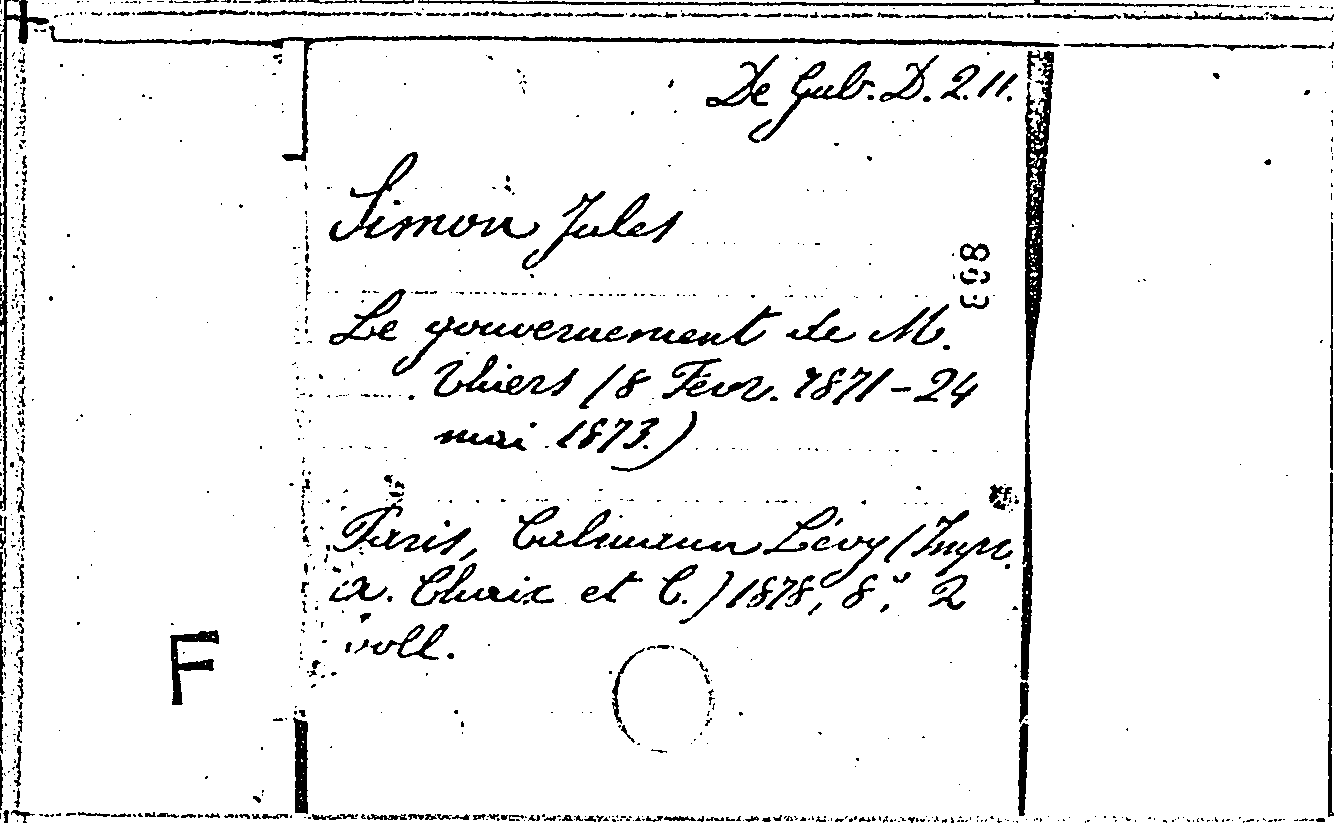 De Gub. D. 2. 11.
Simon Jules
898
Le gouvernement de M.
Thiers (8 Fevr. 1871 - 24
mai 1873.)
Paris, Calmann Lévy (Impr.
A. Chaix et C.) 1878, 8°, 2
voll.
F